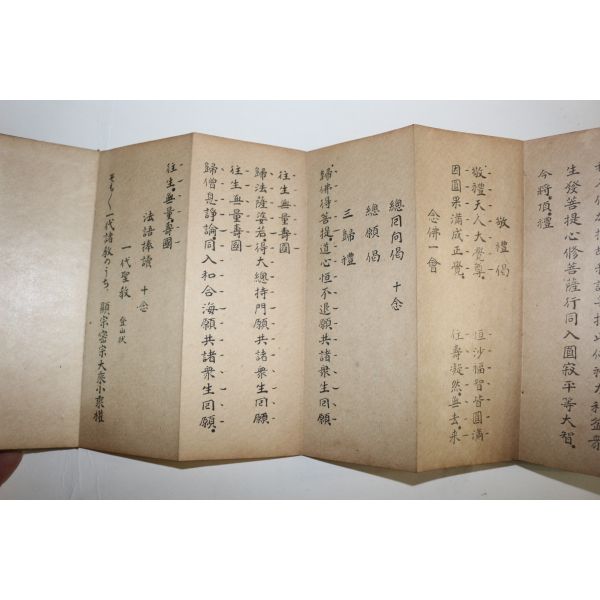 生發菩提心修菩薩行同入圓寂平等大智
今將頂禮
敬禮偈
敬禮天人大覺尊 恒沙福智皆圓滿
因圓果滿成正覺 住壽凝然無去來
念佛一會
總回向偈 十念
總願偈
三歸禮
歸佛得菩提道心恒不退願共諸衆生回願
往生無量壽國
歸法薩婆若得大總持門願共諸衆生回願
往生無量壽國
歸僧息諍論同入和合海願共諸衆生回願
往生無量壽國
法語捧讀 十念
一代聖教 登山狀
そも〱一代諸教のうち、顯宗密宗大乘小乘權